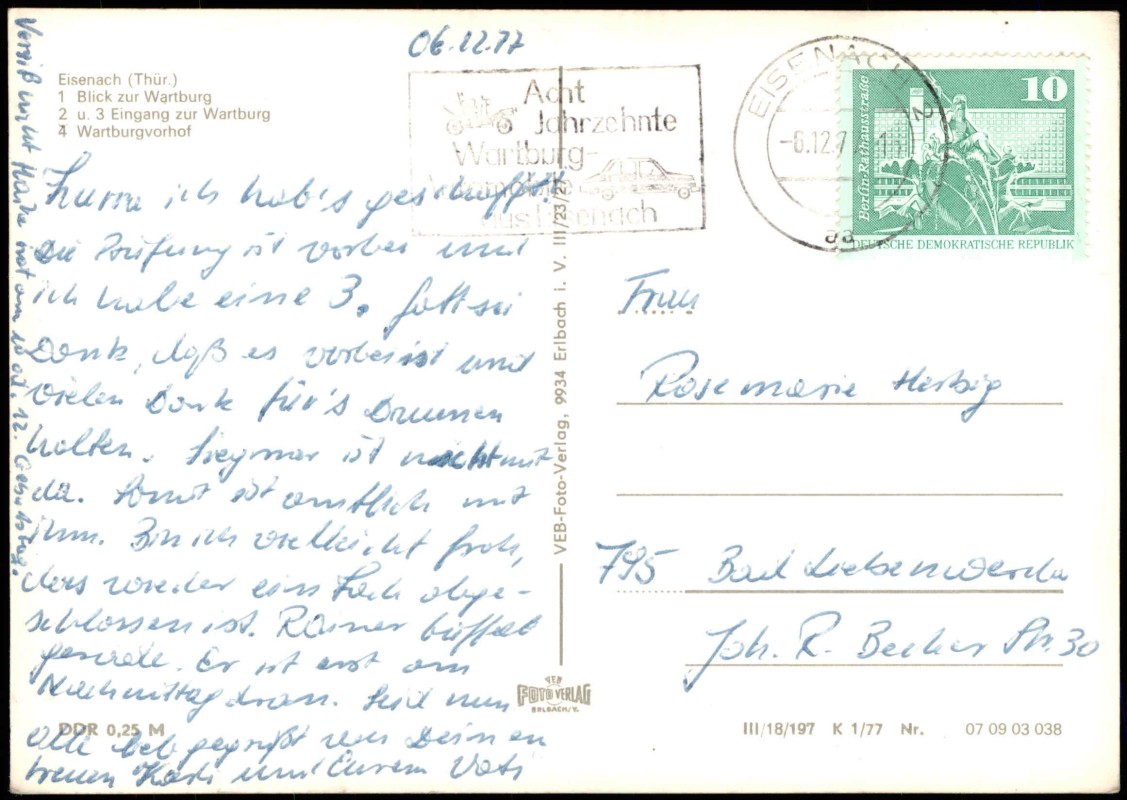 06.12.77
Eisenach (Thür.)
1 Blick zur Wartburg
2 u. 3 Eingang zur Wartburg
4 Wartburgvorhof
Acht
Jahrzehnte
Wartburg-
aus Eisenach
EISENACH 2
-6.12.7
aa
10
Berlin-Rathausstraße
DEUTSCHE DEMOKRATISCHE REPUBLIK
Hurra ich hab's geschafft!
Die Prüfung ist vorbei und
ich habe eine 3. Gott sei
Dank, daß es vorbei ist und
vielen Dank für's Daumen
halten. Siegmar ist nicht mit
da. Somit ist amtlich mit
ihm. Bin ich vielleicht froh,
das wieder ein Fach abge-
schlossen ist. Rainer büffelt
gerade. Er ist erst am
Nachmittag dran. Seid nun
alle lieb gegrüßt von Deinem
treuen und Eurem Vati
Vergiß nicht hat am 10. od. 12. Geburtstag.
VEB-Foto-Verlag, 9934 Erlbach i. V. III/23/
Frau
Rosemarie Herbig
795 Bad Liebenwerda
Joh. R. Becher Str. 30
VEB
FOTO VERLAG
ERLBACH/V.
DDR 0,25 M
III/18/197 K 1/77 Nr. 07 09 03 038